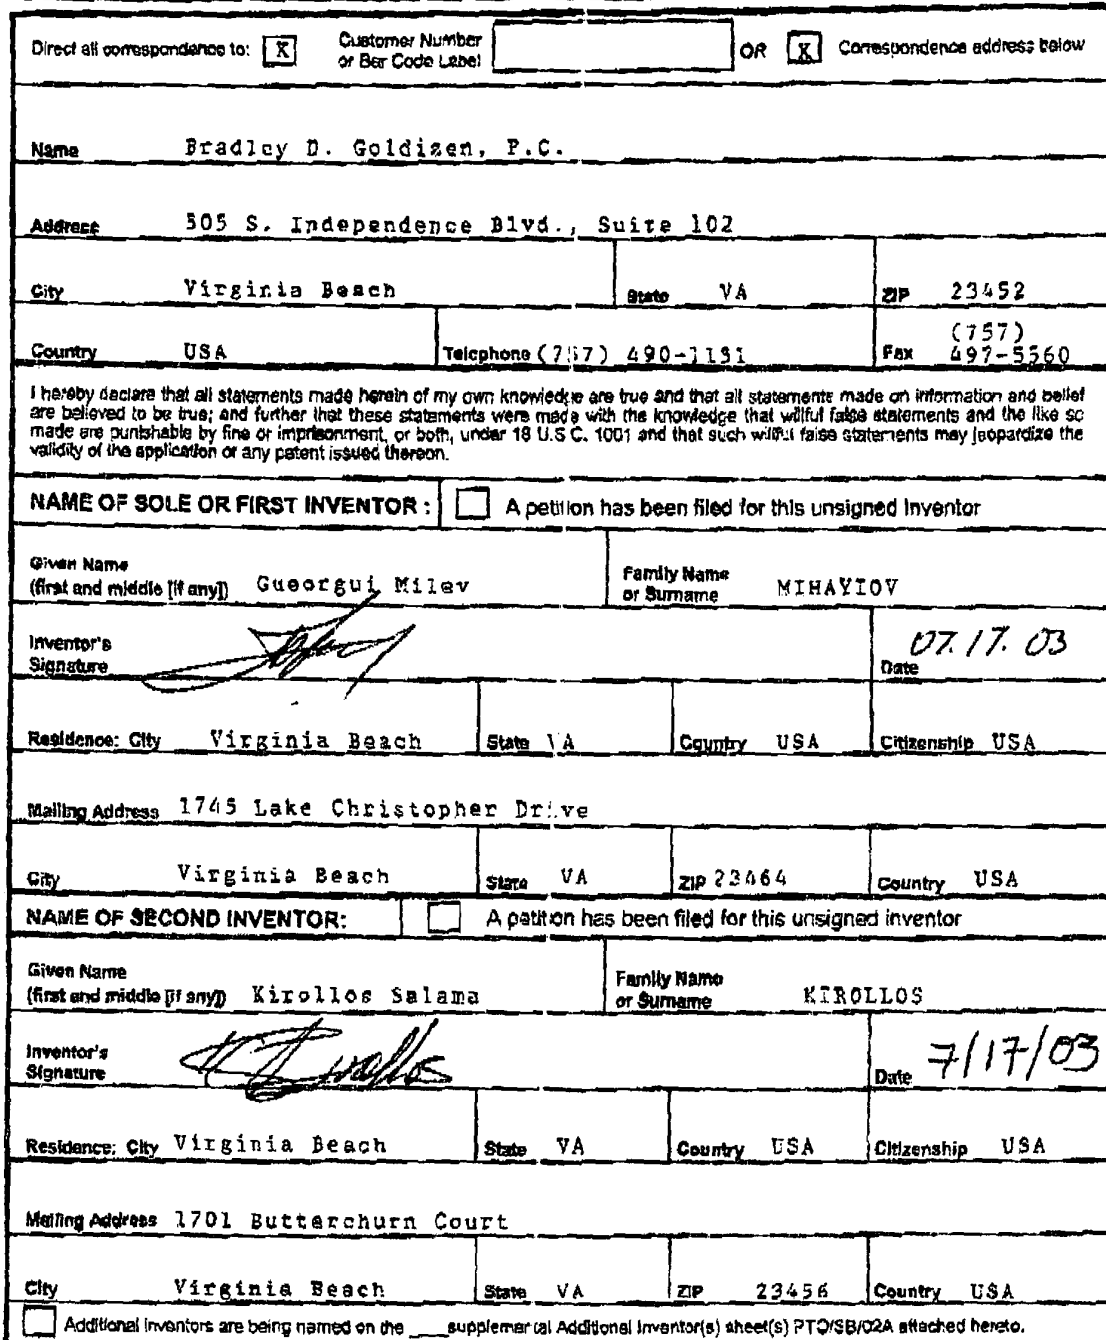 Direct all correspondence to: [X] Customer Number or Bar Code Label OR [X] Correspondence address below
Name Bradley D. Goldizen, P.C.
Address 505 S. Independence Blvd., Suite 102
City Virginia Beach State VA ZIP 23452
Country USA Telephone (757) 490-1131 Fax (757) 497-5560
I hereby declare that all statements made herein of my own knowledge are true and that all statements made on information and belief
are believed to be true; and further that these statements were made with the knowledge that willful false statements and the like so
made are punishable by fine or imprisonment, or both, under 18 U.S.C. 1001 and that such willful false statements may jeopardize the
validity of the application or any patent issued thereon.
NAME OF SOLE OR FIRST INVENTOR : A petition has been filed for this unsigned inventor
Given Name
(first and middle [if any]) Gueorgui Milev Family Name or Surname MIHAYLOV
Inventor's Signature Date 07.17.03
Residence: City Virginia Beach State VA Country USA Citizenship USA
Mailing Address 1745 Lake Christopher Drive
City Virginia Beach State VA ZIP 23464 Country USA
NAME OF SECOND INVENTOR: A petition has been filed for this unsigned inventor
Given Name
(first and middle [if any]) Kirollos Salama Family Name or Surname KIROLLOS
Inventor's Signature Kirollos Date 7/17/03
Residence: City Virginia Beach State VA Country USA Citizenship USA
Mailing Address 1701 Butterchurn Court
City Virginia Beach State VA ZIP 23456 Country USA
Additional inventors are being named on the ___ supplemental Additional Inventor(s) sheet(s) PTO/SB/02A attached hereto.